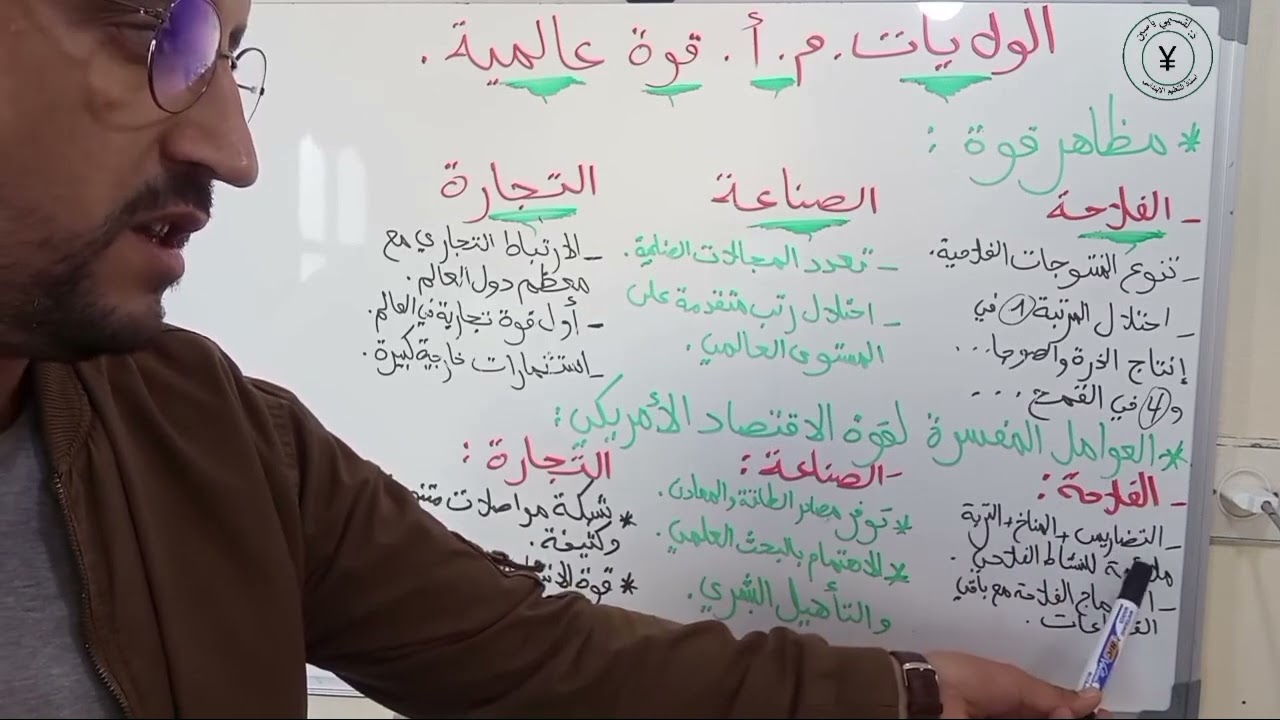 الولايات. م. أ. قوة عالمية.
* مظاهر قوة :
- الفلاحة
- تنوع المنتوجات الفلاحية.
- احتلال المرتبة 1 في
إنتاج الذرة والصوجا...
و 4 في القمح ....
الصناعة
- تعدد المجالات الصناعية.
- احتلال رتب متقدمة على
المستوى العالمي.
التجارة
- الارتباط التجاري مع
معظم دول العالم.
- أول قوة تجارية في العالم.
- استثمارات خارجية كبيرة.
* العوامل المفسرة لقوة الاقتصاد الأمريكي :
- الفلاحة :
- التضاريس + المناخ + التربة
للنشاط الفلاحي.
الفلاحة مع باقي
- الصناعة :
* توفر مصادر الطاقة والمعادن.
* الاهتمام بالبحث العلمي.
والتأهيل البشري.
التجارة :
* شبكة مواصلات
وكثيفة.
* قوة
¥